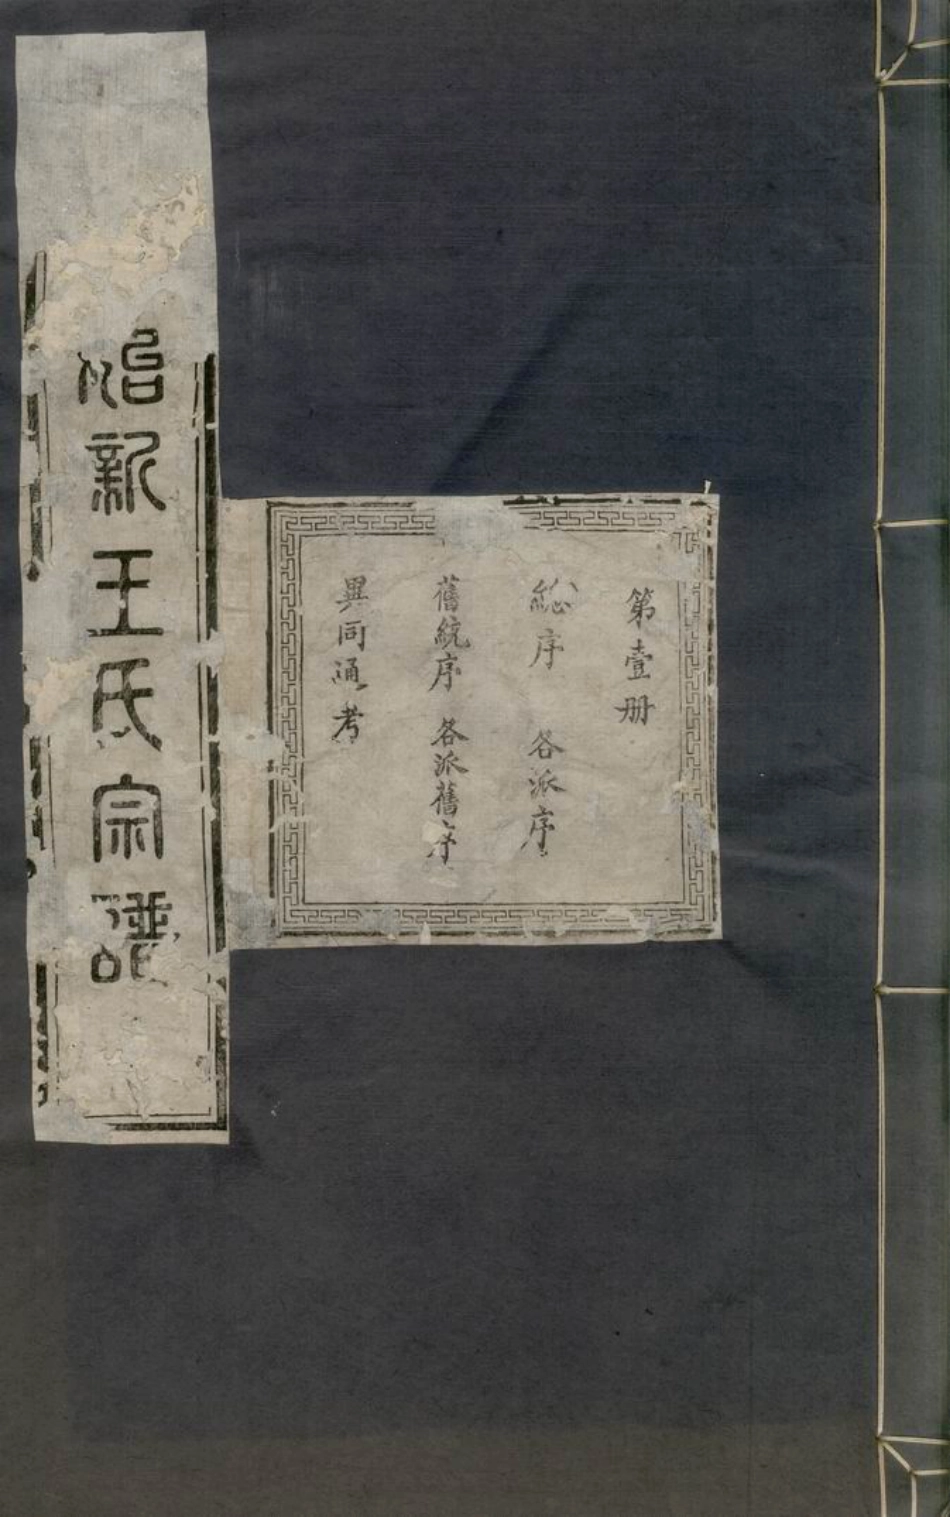 第壹册
総序 各派序
舊統序 各派舊序
異同通考
始新王氏宗譜